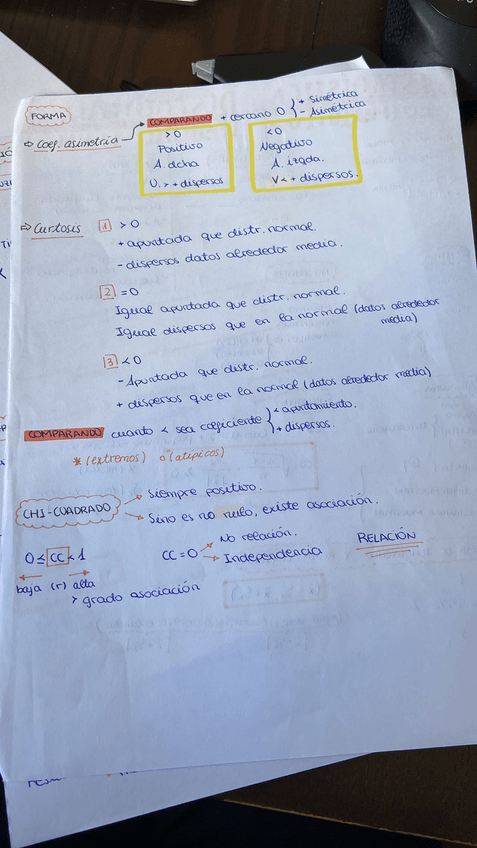 FORMA
⇒ Coef. asimetría → COMPARANDO + cercano 0 { + Simétrica
- Asimétrica
> 0
Positivo
A. dcha
V. > + dispersos
< 0
Negativo
A. izqda.
V < + dispersos.
⇒ Curtosis
1 > 0
+ apuntada que distr. normal.
- dispersos datos alrededor media.
2 = 0
Igual apuntada que distr. normal.
Igual dispersos que en la normal (datos alrededor
media)
3 < 0
- Apuntada que distr. normal.
+ dispersos que en la normal (datos alrededor media)
COMPARANDO cuanto < sea coeficiente } < apuntamiento.
+ dispersos.
* (extremos) o (atípicos)
CHI-CUADRADO → Siempre positivo.
→ Si no es no nulo, existe asociación.
0 ≤ CC < 1
baja (r) alta
> grado asociación
CC = 0 → No relación.
→ Independencia
RELACIÓN